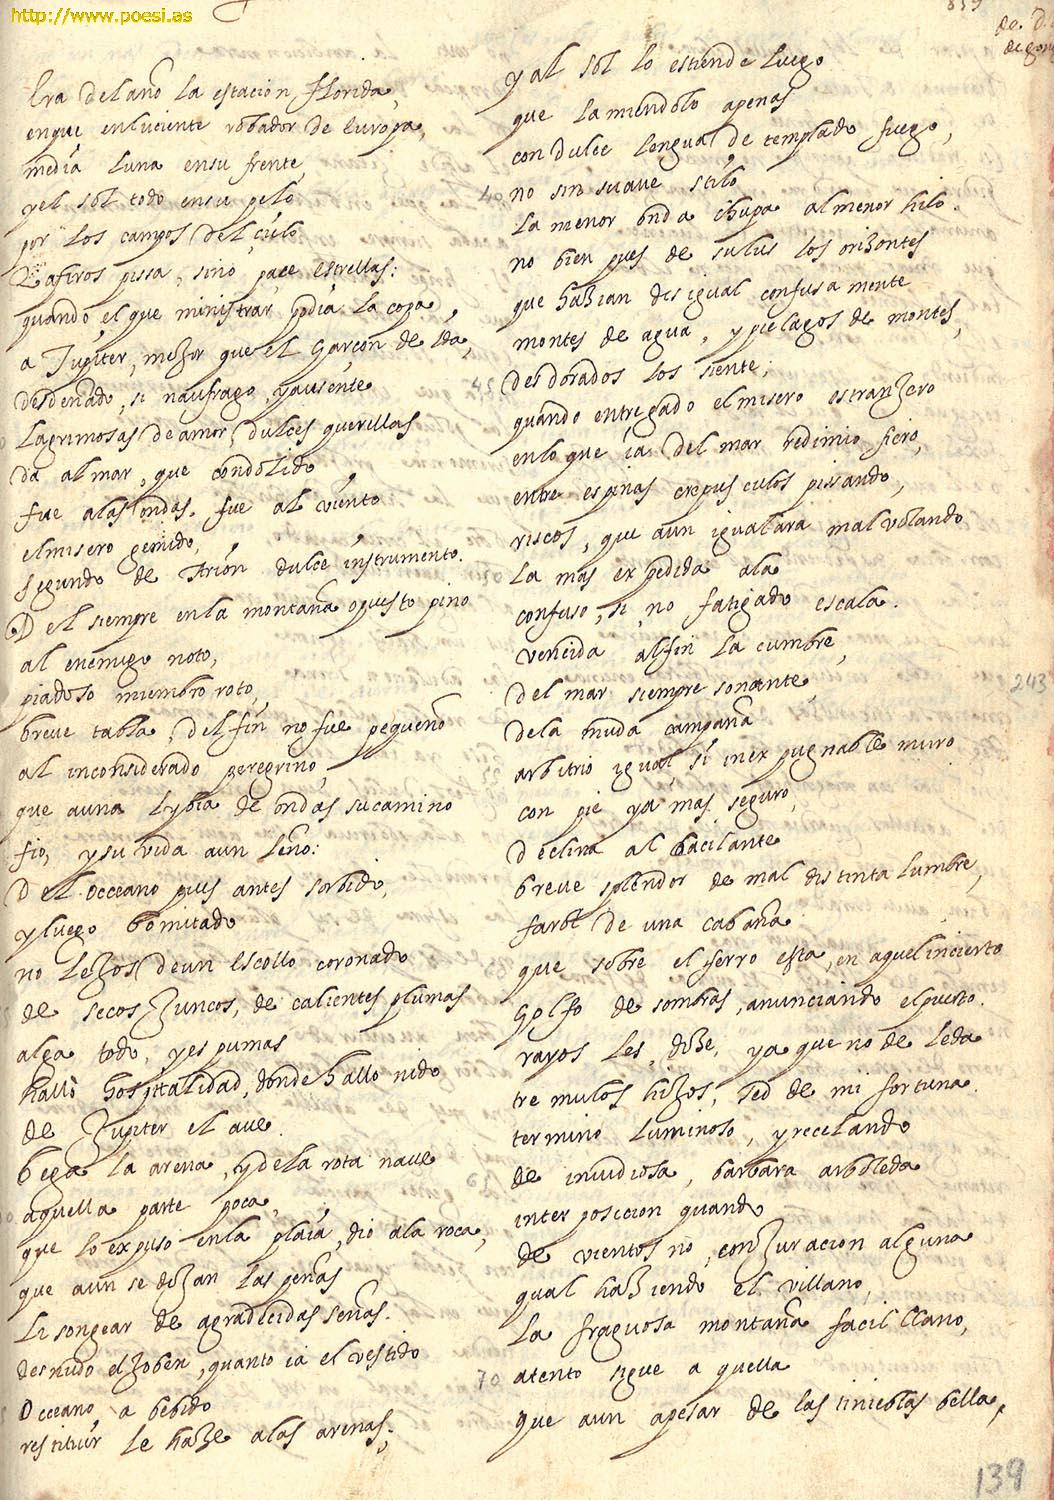 http://www.poesi.as
839
de. D.
de gon
Era del año la estacion florida,
enque enluciente robador de Europa,
media luna ensu frente,
yel sol todo ensu pelo
por los campos del cielo
Zafiros pissa, sino pace estrellas:
quando el que ministrar podia la copa,
a Jupiter, mejor que el Garçon de Ida,
desdeñado, si naufrago, yausente
Lagrimosas de amor, dulces querellas
da al mar, que condolido,
fue alas ondas, fue al viento
elmisero gemido,
segundo de Arion dulce instrumento.
Del siempre enla montaña opuesto pino
al enemigo noto,
piadoso miembro roto,
breue tabla, delfin no fue pequeño
al inconsiderado peregrino,
que auna Lybia de ondas sucamino
fio, ysu vida aun leño:
Del occeano pues antes sorbido,
yluego bomitado
no Lejos deun Escollo coronado
de secos juncos, de calientes plumas
alga todo, yespumas
hallò hospitalidad, donde hallo nido
de Jupiter el aue.
besa la arena, ydela rota naue
aquella parte poca,
que lo expuso enla plaia, dio ala roca,
que aun se dejan las peñas
Lisongear de agradecidas señas.
desnudo eljoben, quanto ia el vestido
Occeano, a bebido
restituir le haze alas arenas;
yal sol lo estiende Luego
que lamiendolo apenas
con dulce lengua de templado fuego,
40
no sin suaue stilo
La menor onda chupa almenor hilo.
no bien pues de sulus los orizontes
que hazian desigual confusamente
montes de agua, ypielagos de montes,
45
desdorados los siente,
quando entregado elmisero estranjero
enlo que ia del mar redimio fiero,
entre espinas crepusculos pissando,
riscos, que aun igualara mal volando
La mas expedida ala
confuso, si no fatigado escala.
vencida alfin la cumbre,
del mar siempre sonante,
dela muda campaña
arbitrio igual, si inexpugnable muro
con pie ya mas seguro,
declina al bacilante
breue splendor de mal distinta lumbre,
farol de una cabaña
que sobre el ferro esta, en aquelincierto
Golfo de sombras, anunciando elpuerto.
rayos les, dize, ya que no de Leda
tremulos hijos, sed de mi fortuna
termino luminoso, yrecelando
de inuidiosa, barbara arboleda
interposicion quando
de vientos no, conjuracion alguna
qual haziendo el villano,
La fragosa montaña facil llano,
70
atento sigue a quella
que aun apesar de las tinieblas bella,
243
139